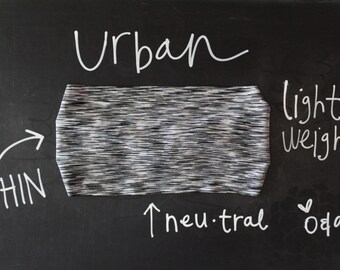 Urban
light
weigh
HIN
neu•tral